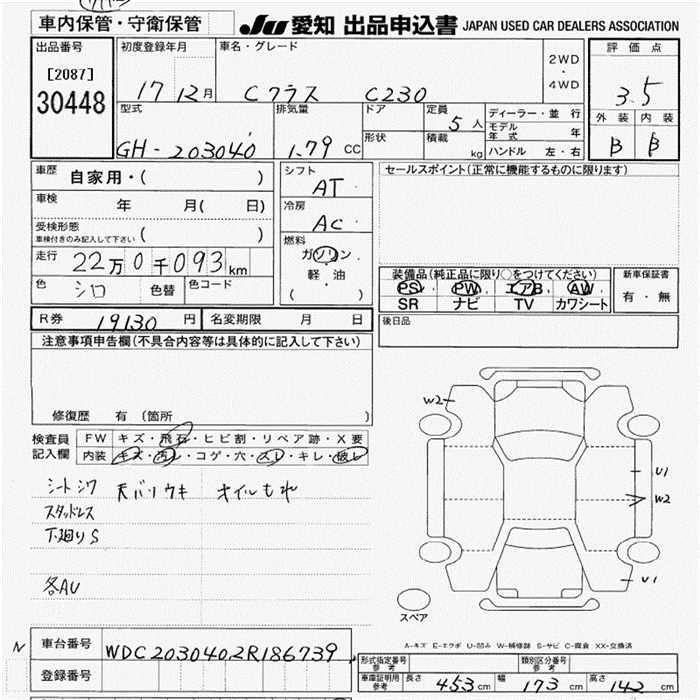 車内保管・守衛保管
JU 愛知 出品申込書 JAPAN USED CAR DEALERS ASSOCIATION
出品番号
[2087]
30448
初度登録年月
17 12月
車名・グレード
Cクラス C230
2WD
・
4WD
評価点
3.5
外装 内装
B B
型式
GH-203040
排気量
1.79 CC
ドア
形状
定員
5人
積載
kg
ディーラー・並行
モデル年式 年
ハンドル 左・右
車歴 自家用・( )
車検 年 月( 日)
受検形態
車検付きのみ記入して下さい ( )
走行 22万0千093km
色 シロ 色替 色コード
シフト
AT
冷房
AC
燃料
ガソリン・
軽・油
( )
セールスポイント(正常に機能するものに限ります)
装備品(純正品に限り○をつけてください)
PS PW エアB AW
SR ナビ TV カワシート
新車保証書
有・無
後日品
R券 19130円 名変期限 月 日
注意事項申告欄(不具合内容等は具体的に記入して下さい)
修復歴 有(箇所 )
検査員
記入欄
FW キズ・飛石・ヒビ割・リペア跡・X要
内装 キズ・汚レ・コゲ・穴・スレ・キレ・破レ
シートシワ 天バリウキ オイルもれ
スタッドレス
下廻りS
各AU
W2
U1
W2
U1
スペア
A-キズ E-エクボ U-凹み W-補修跡 S-サビ C-腐食 XX-交換済
N
車台番号 WDC2030402R186739
登録番号
形式指定番号
参考
類別区分番号
参考
車庫証明用
参考
長さ 453cm 幅 173cm 高さ 142cm